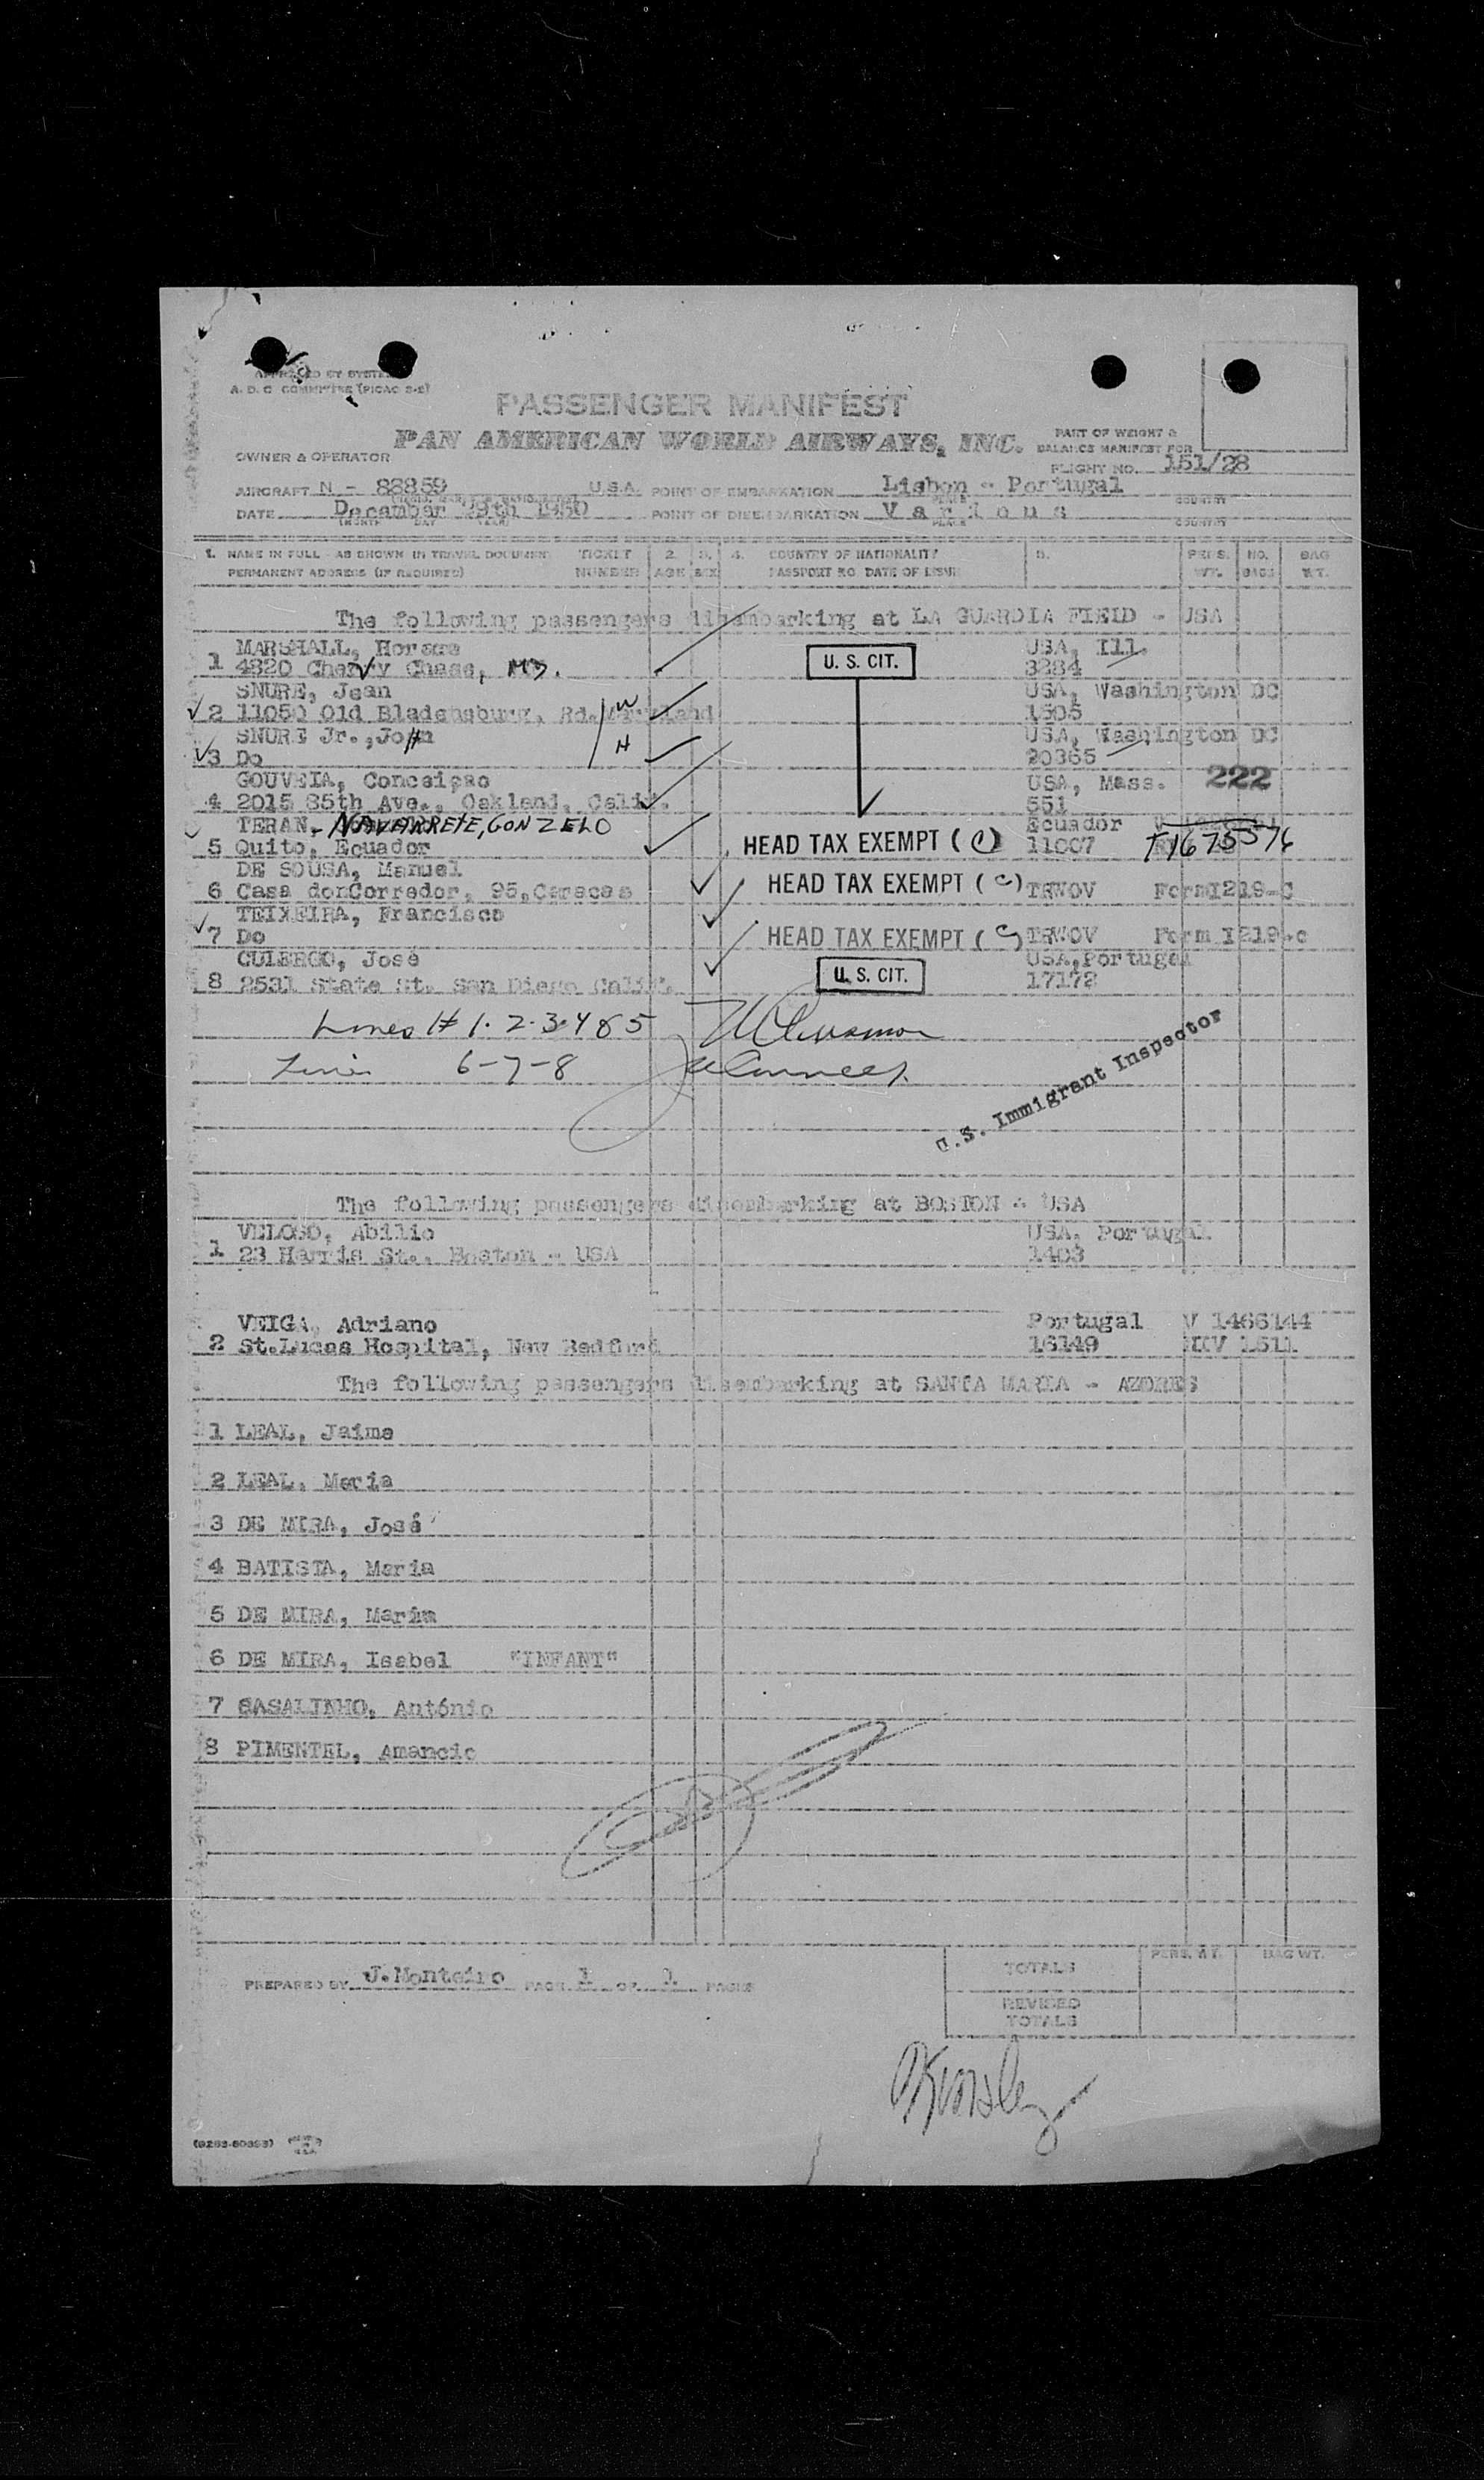 APPROVED BY SYSTEM
A. D. C COMMITTEE (PICAO 2-2)
PASSENGER MANIFEST
PAN AMERICAN WORLD AIRWAYS, INC.
PART OF WEIGHT &
BALANCE MANIFEST FOR
OWNER & OPERATOR
FLIGHT NO. 151/28
AIRCRAFT N - 88859 U.S.A. POINT OF EMBARKATION Lisbon - Portugal
PLACE COUNTRY
DATE December 29th 1950 POINT OF DISEMBARKATION Various
MONTH DAY YEAR PLACE COUNTRY
1. NAME IN FULL - AS SHOWN IN TRAVEL DOCUMENT TICKET 2. 3. 4. COUNTRY OF NATIONALITY 5. PERS. NO. BAG
PERMANENT ADDRESS (IF REQUIRED) NUMBER AGE SEX PASSPORT NO DATE OF ISSUE WT. BAGS WT.
The following passengers disembarking at LA GUARDIA FIELD - USA
MARSHALL, Horace USA, Ill.
1 4820 Chevy Chase, MD. U. S. CIT. 3284
SNURE, Jean USA, Washington DC
2 11050 Old Bladensburg, Rd. Maryland W 1505
SNURE Jr., John USA, Washington DC
3 Do H 20365
GOUVEIA, Conceiçao USA, Mass. 222
4 2015 85th Ave., Oakland, Calif. 551
TERAN - NAVARRETE, GONZELO Ecuador
5 Quito, Ecuador HEAD TAX EXEMPT (C) 11007
DE SOUSA, Manuel
6 Casa donCorredor, 95, Caracas HEAD TAX EXEMPT (C) TRWOV Form I219-C
TEIXEIRA, Francisco
7 Do HEAD TAX EXEMPT (C) TRWOV Form I219-c
José USA, Portugal
8 2531 State St. San Diego Calif. U. S. CIT. 17172
Lines # 1-2-3-4 & 5
Lines 6-7-8
U.S. Immigrant Inspector
The following passengers disembarking at BOSTON - USA
VELOSO, Abilio USA, Portugal
1 23 Harris St., Boston - USA 1403
VEIGA, Adriano Portugal V 1466144
2 St.Lucas Hospital, New Bedford 16149 1511
The following passengers disembarking at SANTA MARIA - AZORES
1 LEAL, Jaime
2 LEAL, Maria
3 DE MIRA, José
4 BATISTA, Maria
5 DE MIRA, Maria
6 DE MIRA, Isabel "INFANT"
7 CASALINHO, António
8 PIMENTEL, Amancio
PERS. WT. BAG WT.
TOTALS
PREPARED BY J.Monteiro PAGE 1 OF 1 PAGES
REVISED
TOTALS